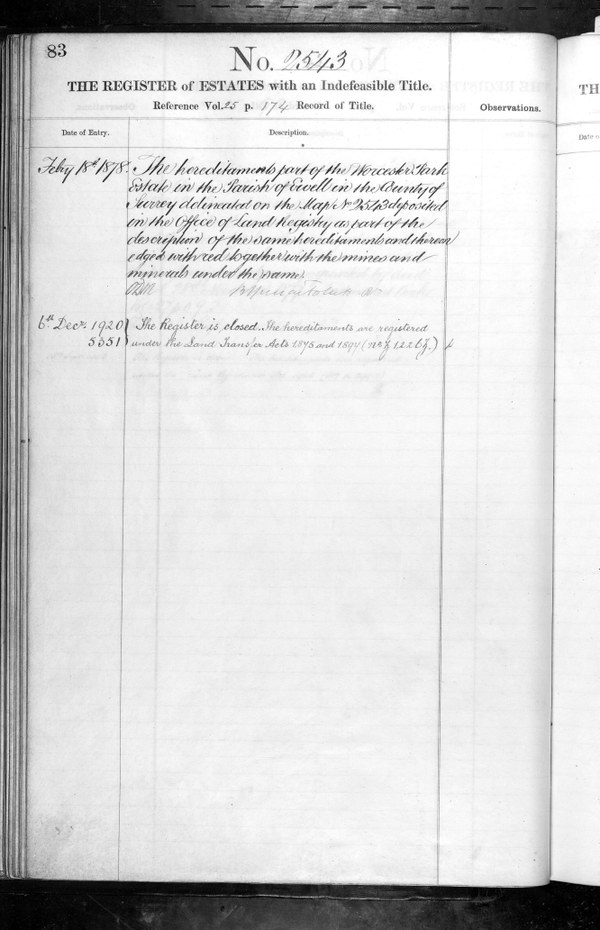 83
No. 2543
THE REGISTER of ESTATES with an Indefeasible Title.
Reference Vol. 25 p. 174 Record of Title.
Observations.
Date of Entry.
Description.
Feby 18th 1878.
The hereditaments part of the Worcester Park
Estate in the Parish of Ewell in the County of
Surrey delineated on the Map No 2543 deposited
in the Office of Land Registry as part of the
description of the same hereditaments and thereon
edged with red together with the mines and
minerals under the same.
6th Decr. 1920
5351
The Register is closed. The hereditaments are registered
under the Land Transfer Acts 1875 and 1897
TH
Date o